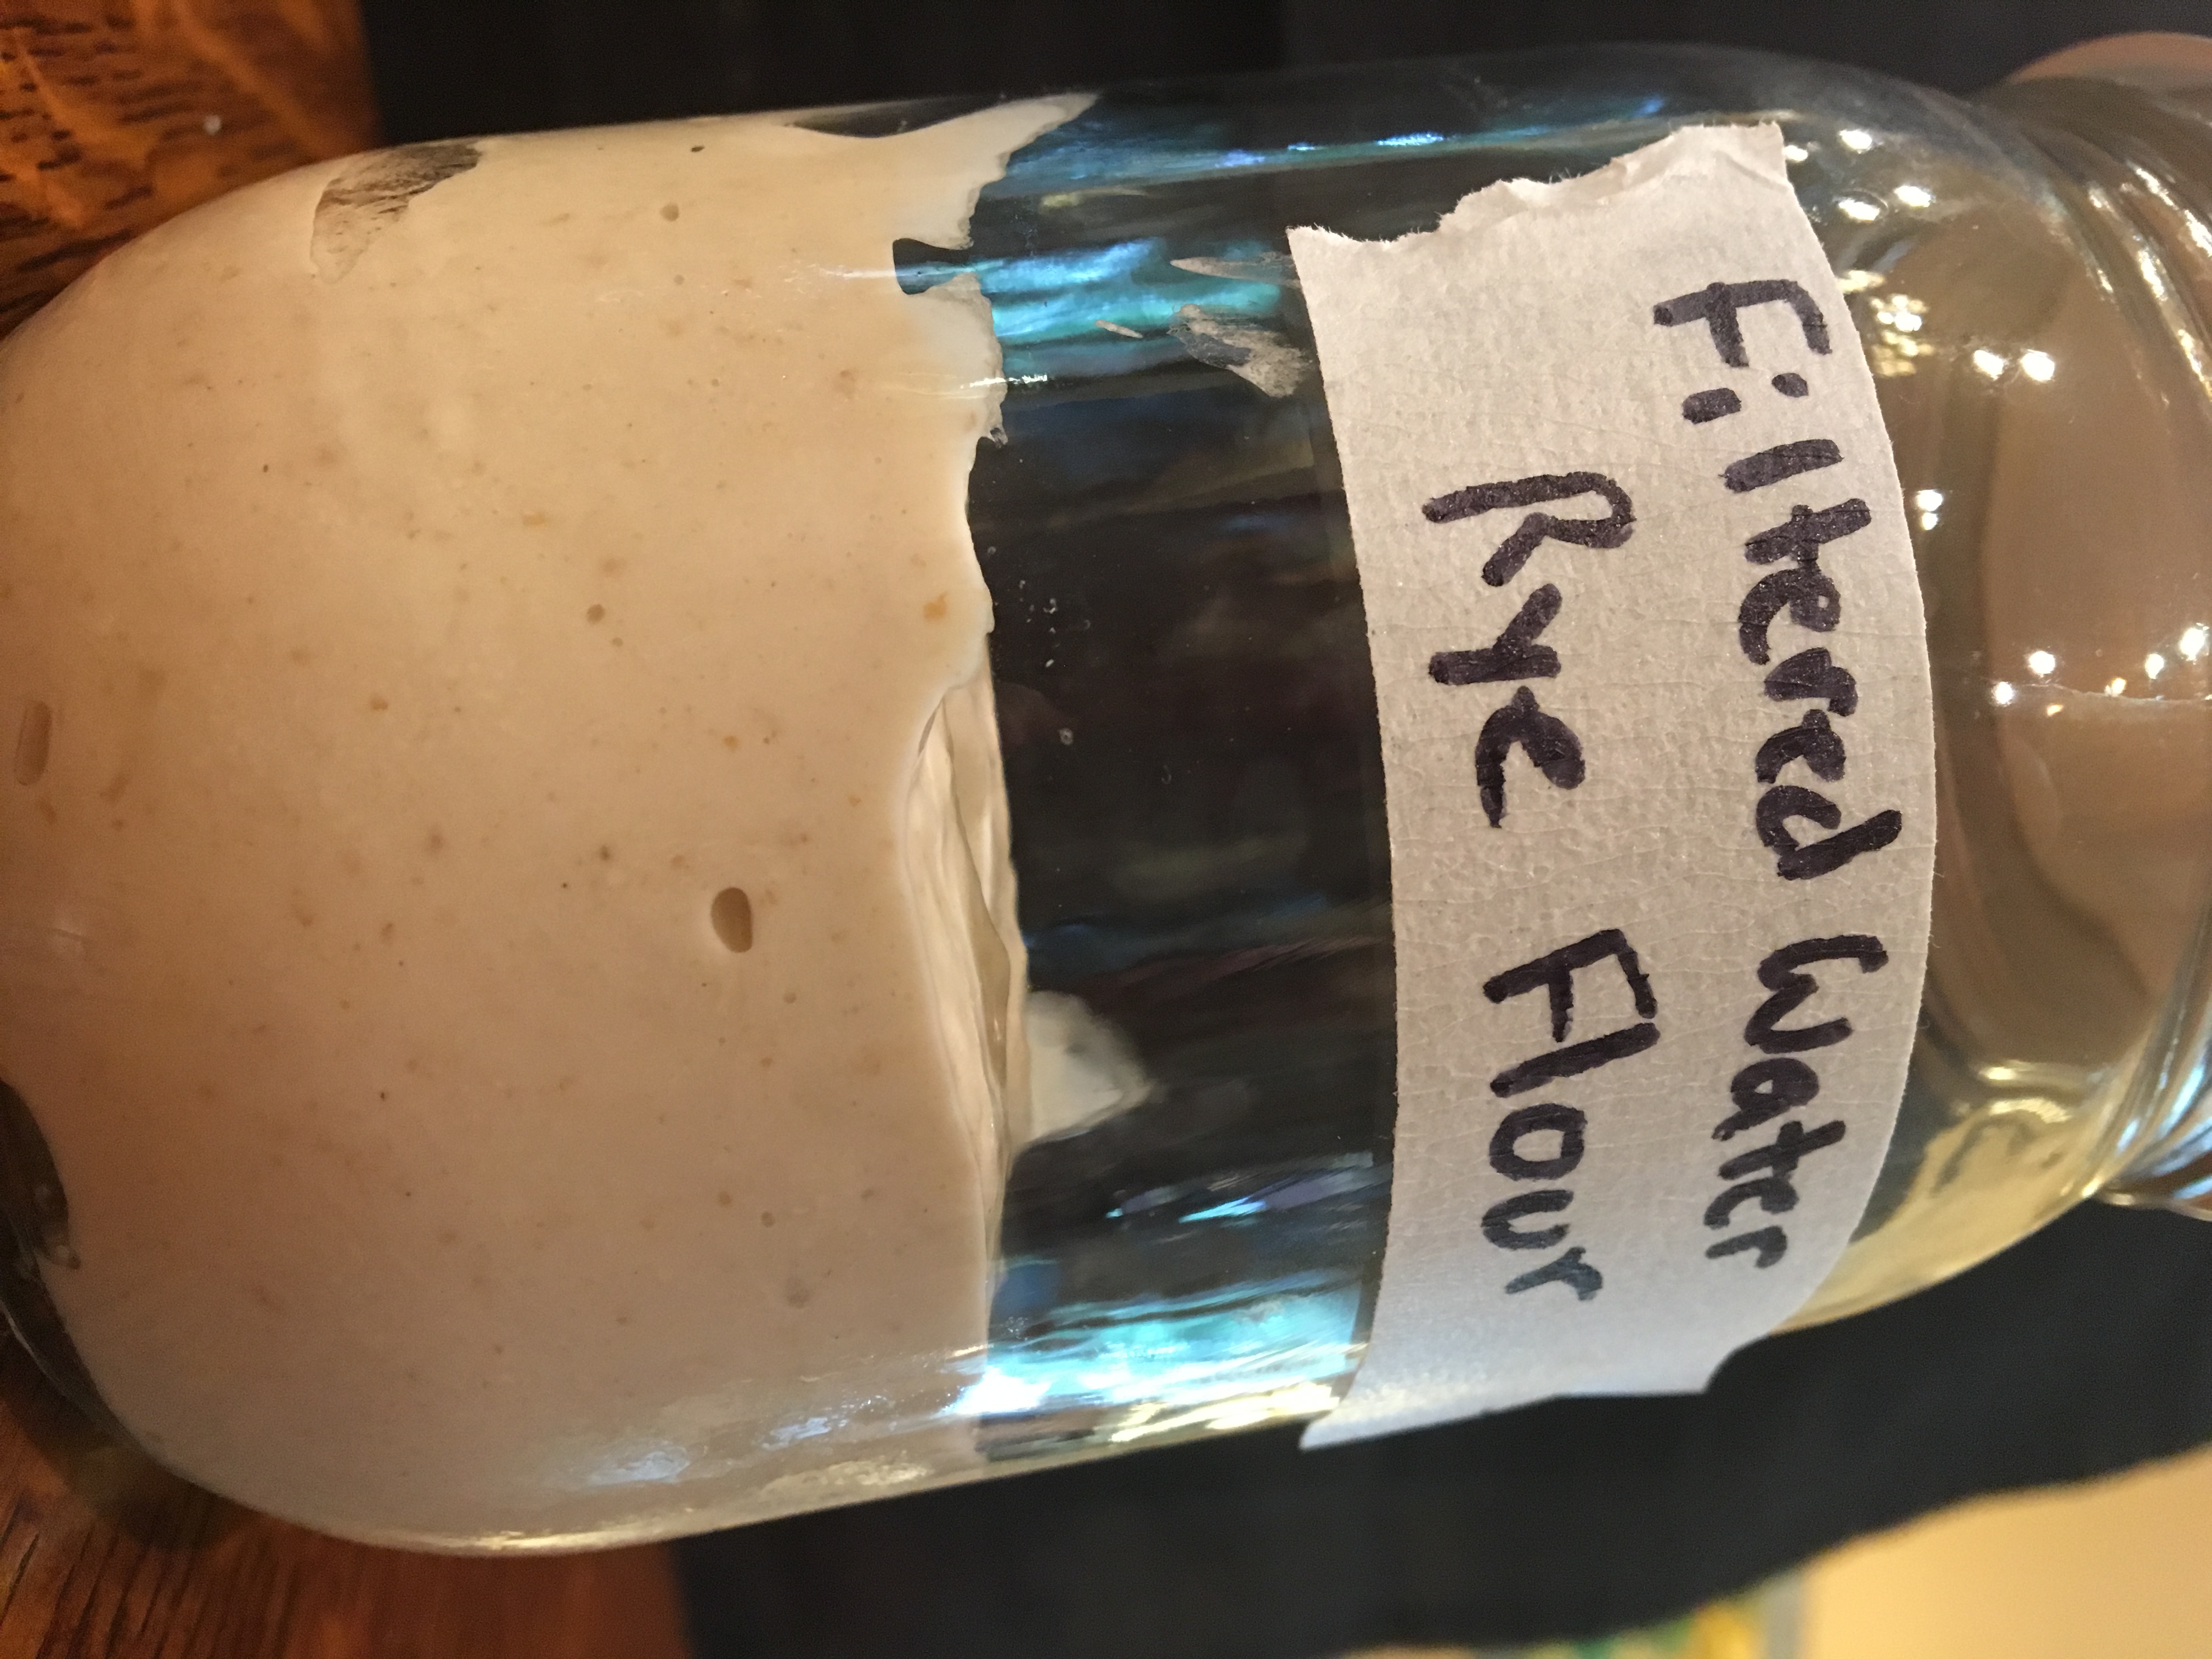 Filtered Water
Rye Flour